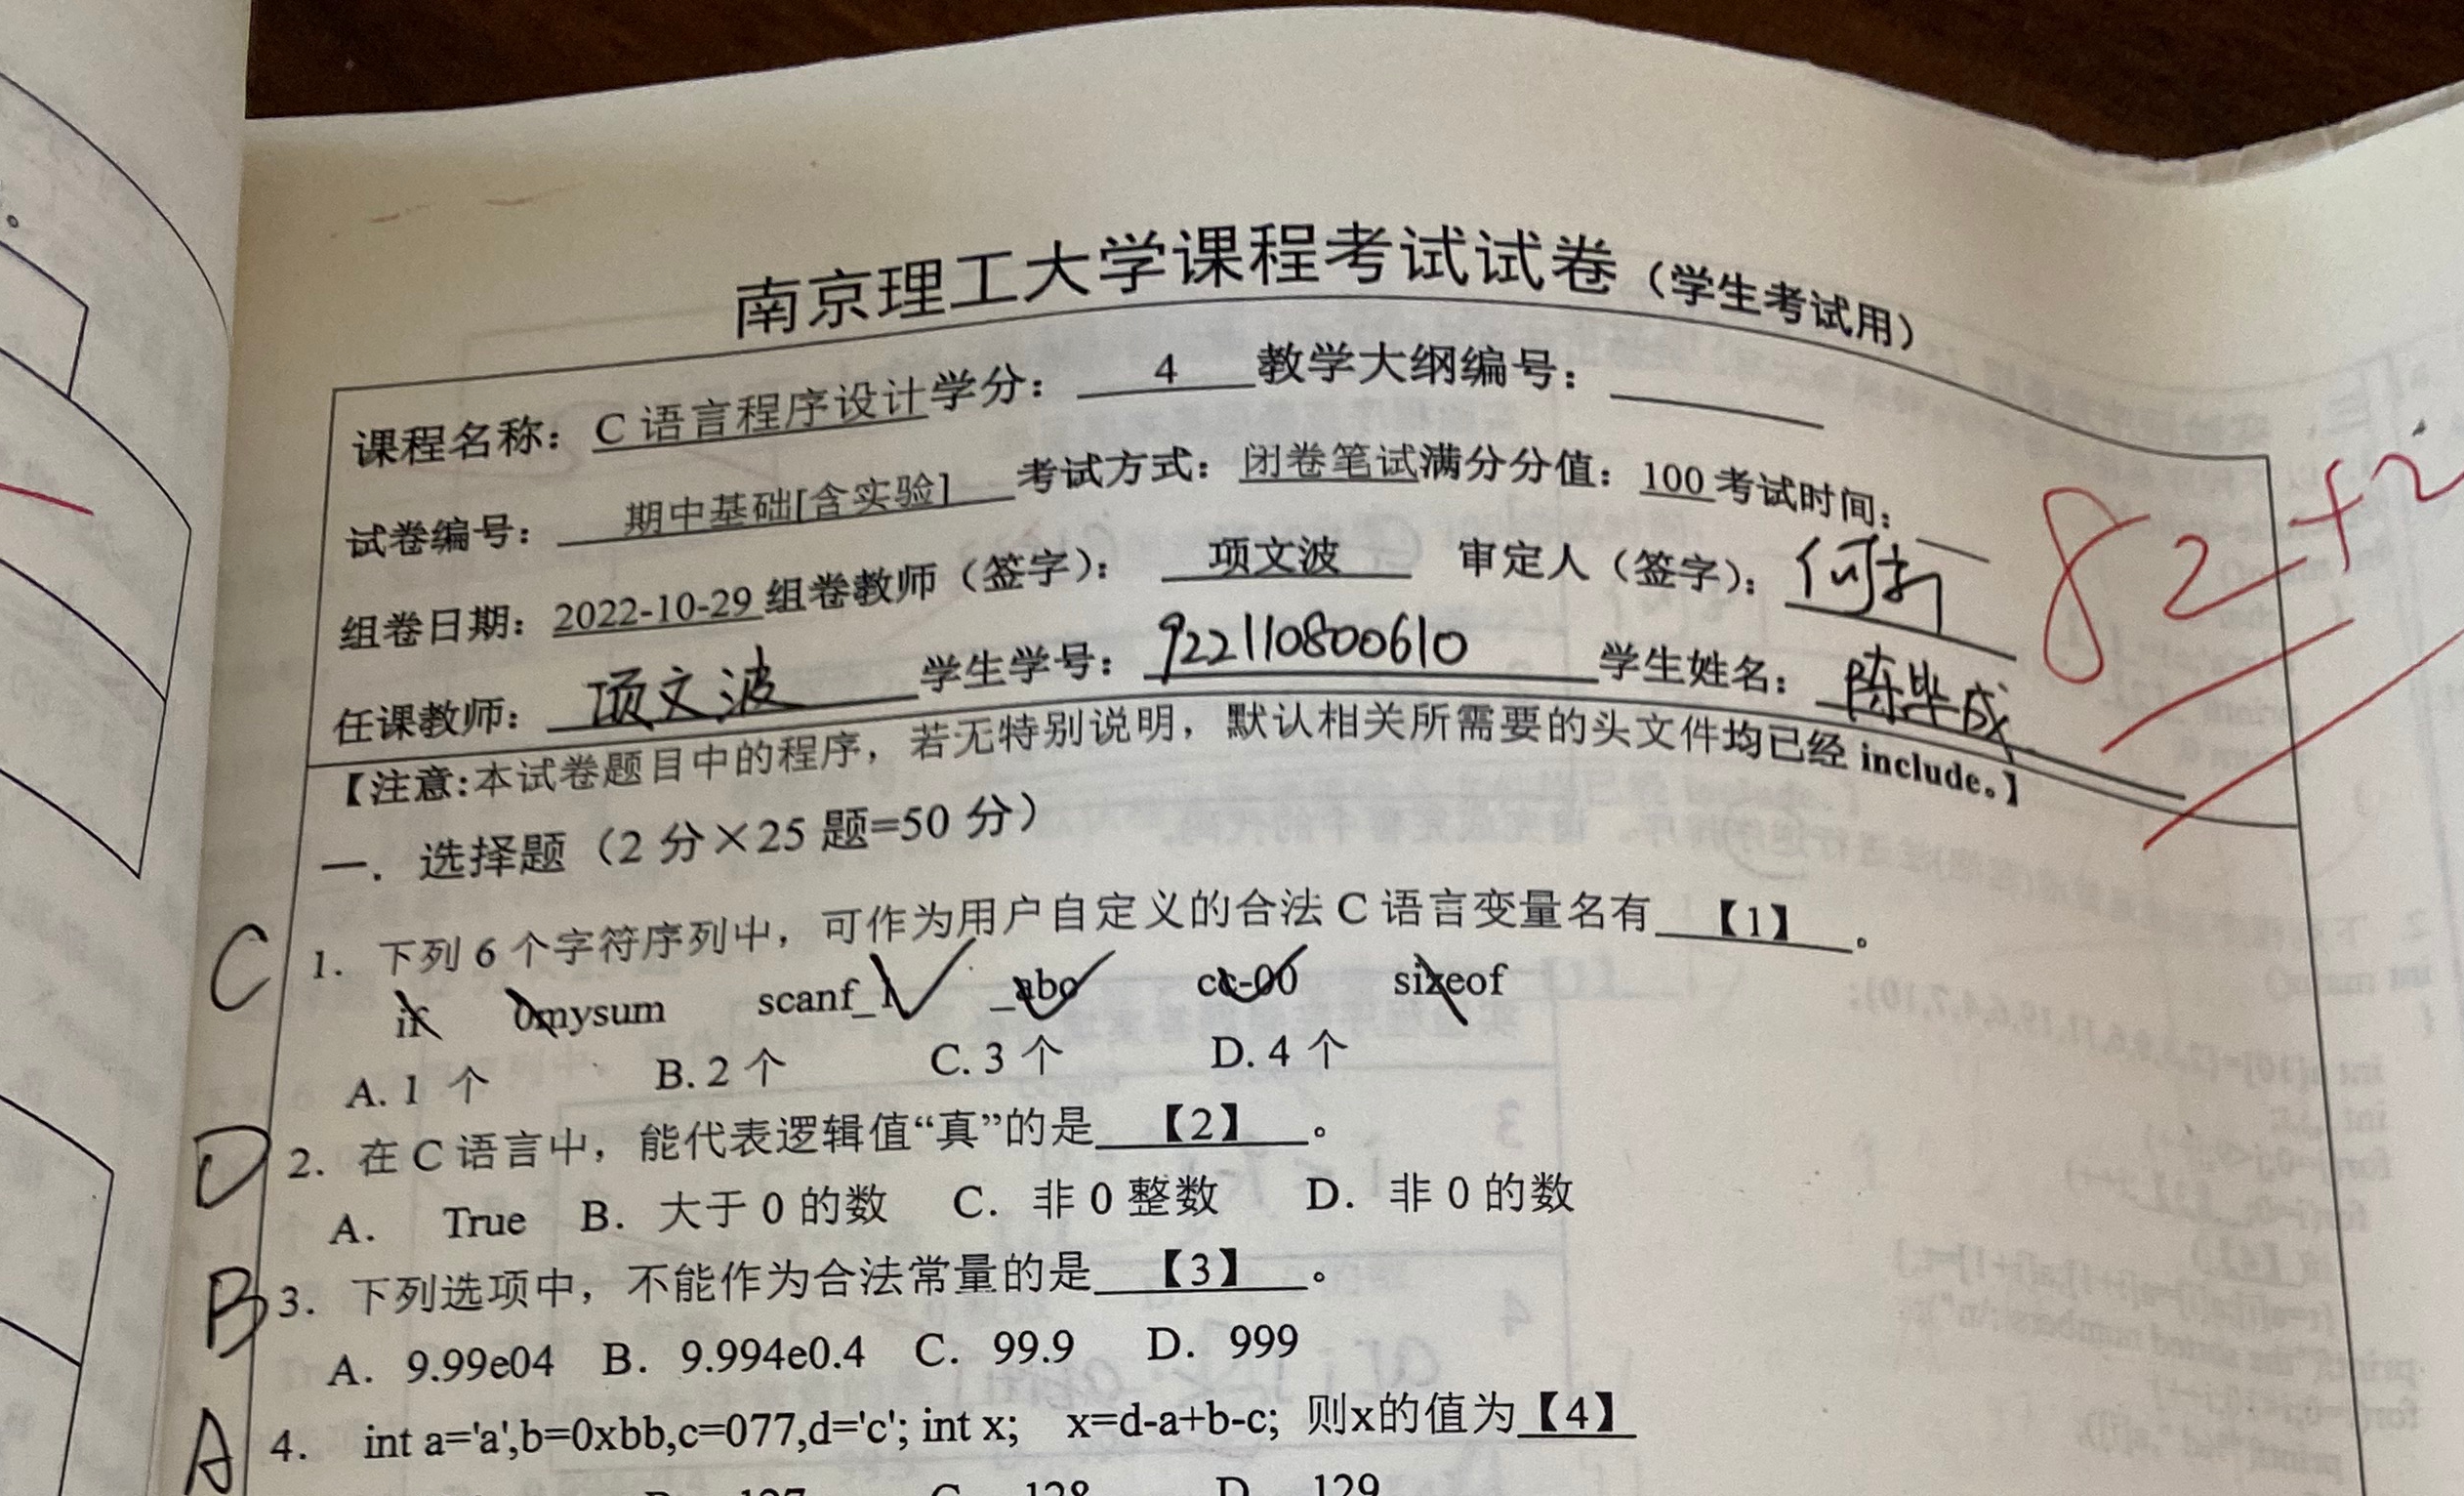 南京理工大学课程考试试卷（学生考试用）
课程名称： C 语言程序设计学分： 4 教学大纲编号：
试卷编号： 期中基础[含实验] 考试方式：闭卷笔试满分分值：100 考试时间：
组卷日期：2022-10-29 组卷教师（签字）： 项文波 审定人（签字）：何新
任课教师： 项文波 学生学号： 922110800610 学生姓名： 陈毕成
82+2
【注意:本试卷题目中的程序，若无特别说明，默认相关所需要的头文件均已经 include。】
一．选择题（2 分×25 题=50 分）
C 1. 下列 6 个字符序列中，可作为用户自定义的合法 C 语言变量名有 【1】 。
if 0mysum scanf_1 _abc cc-00 sizeof
A. 1 个 B. 2 个 C. 3 个 D. 4 个
D 2. 在 C 语言中，能代表逻辑值“真”的是 【2】 。
A. True B. 大于 0 的数 C. 非 0 整数 D. 非 0 的数
B 3. 下列选项中，不能作为合法常量的是 【3】 。
A. 9.99e04 B. 9.994e0.4 C. 99.9 D. 999
A 4. int a='a',b=0xbb,c=077,d='c'; int x; x=d-a+b-c; 则x的值为【4】
B. 127 C. 128 D. 129